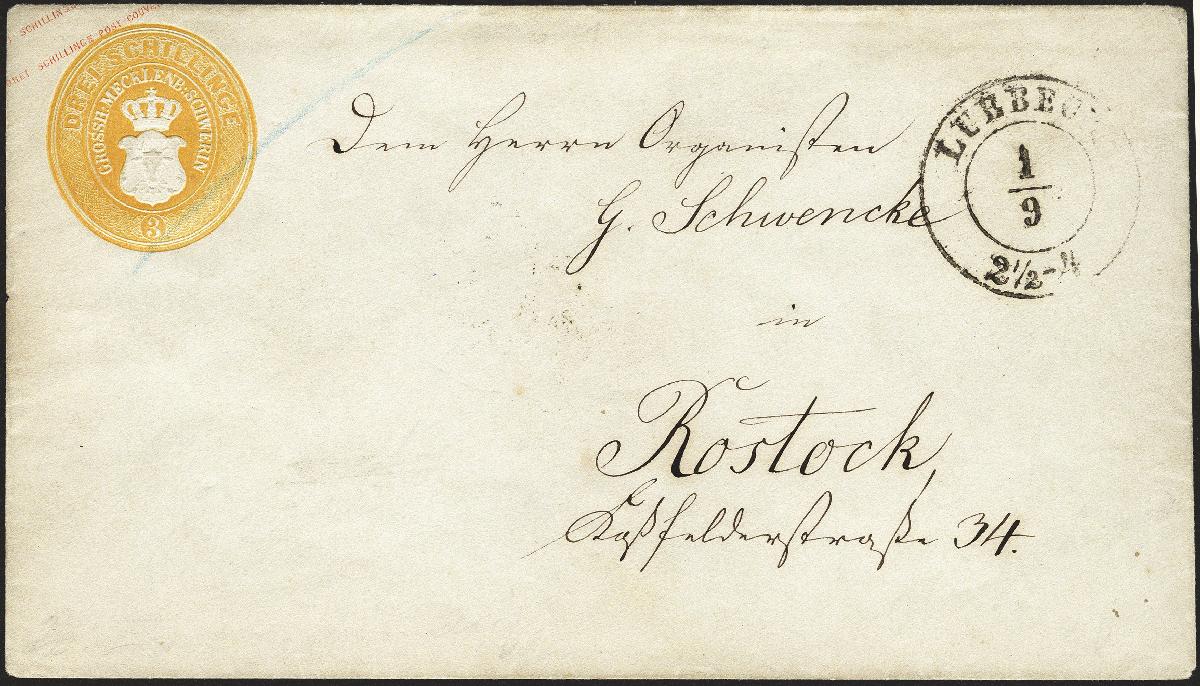 SCHILLINGE
DREI SCHILLINGE POST-COUVERT
DREI SCHILLINGE
GROSSH. MECKLENB: SCHWERIN
3
LUEBECK
1
9
2½-4
Dem Herrn Organisten
G. Schwencke
in
Rostock,
Koßfelderstraße 34.